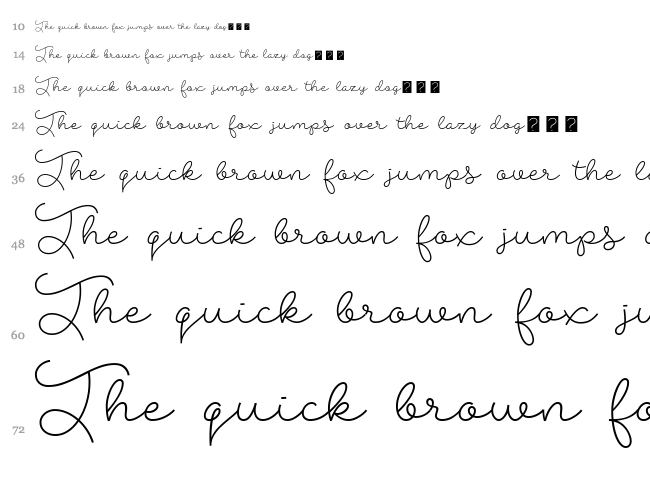 10 The quick brown fox jumps over the lazy dog
14 The quick brown fox jumps over the lazy dog
18 The quick brown fox jumps over the lazy dog
24 The quick brown fox jumps over the lazy dog
36 The quick brown fox jumps over the l
48 The quick brown fox jumps
60 The quick brown fox ju
72 The quick brown fo